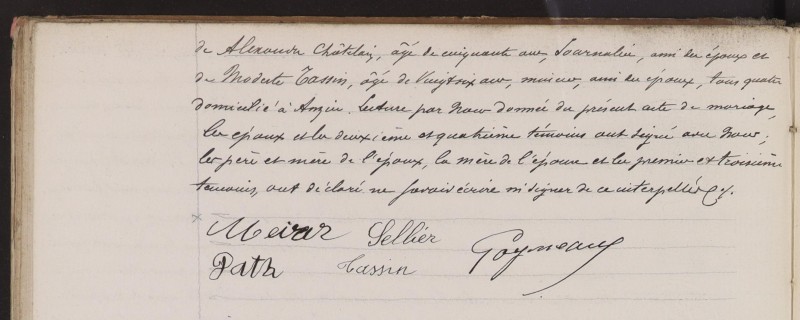 de Alexandre Châtelain, âgé de cinquante ans, Journalier, ami des époux et
de Modeste Tassin, âgé de Vingt six ans, mineur, ami des époux, tous quatre
domiciliés à Anzin. Lecture par Nous donnée du présent acte de mariage,
les époux et les deuxième et quatrième témoins ont signé avec Nous;
les père et mère de l'époux, la mère de l'épouse et les premier et troisième
témoins, ont déclaré ne savoir écrire ni signer de ce interpellés
Meiraz Sellier
Path Tassin